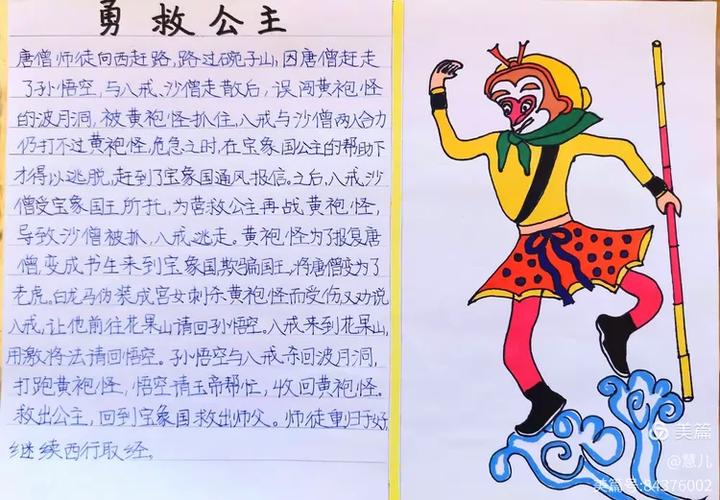 勇救公主
唐僧师徒向西赶路，路过碗子山，因唐僧赶走
了孙悟空，与八戒、沙僧走散后，误闯黄袍怪
的波月洞，被黄袍怪抓住，八戒与沙僧两人合力
仍打不过黄袍怪，危急之时，在宝象国公主的帮助下
才得以逃脱，赶到了宝象国通风报信。之后，八戒沙
僧受宝象国王所托，为营救公主再战黄袍怪，
导致沙僧被抓，八戒逃走。黄袍怪为了报复唐
僧，变成书生来到宝象国欺骗国王，将唐僧变为了
老虎。白龙马伪装成宫女刺杀黄袍怪而受伤又劝说
八戒，让他前往花果山请回孙悟空。八戒来到花果山，
用激将法请回悟空。孙悟空与八戒杀回波月洞，
打跑黄袍怪，悟空请玉帝帮忙，收回黄袍怪。
救出公主，回到宝象国救出师父。师徒重归于好
继续西行取经。
美篇
@慧儿
美篇号:84376002